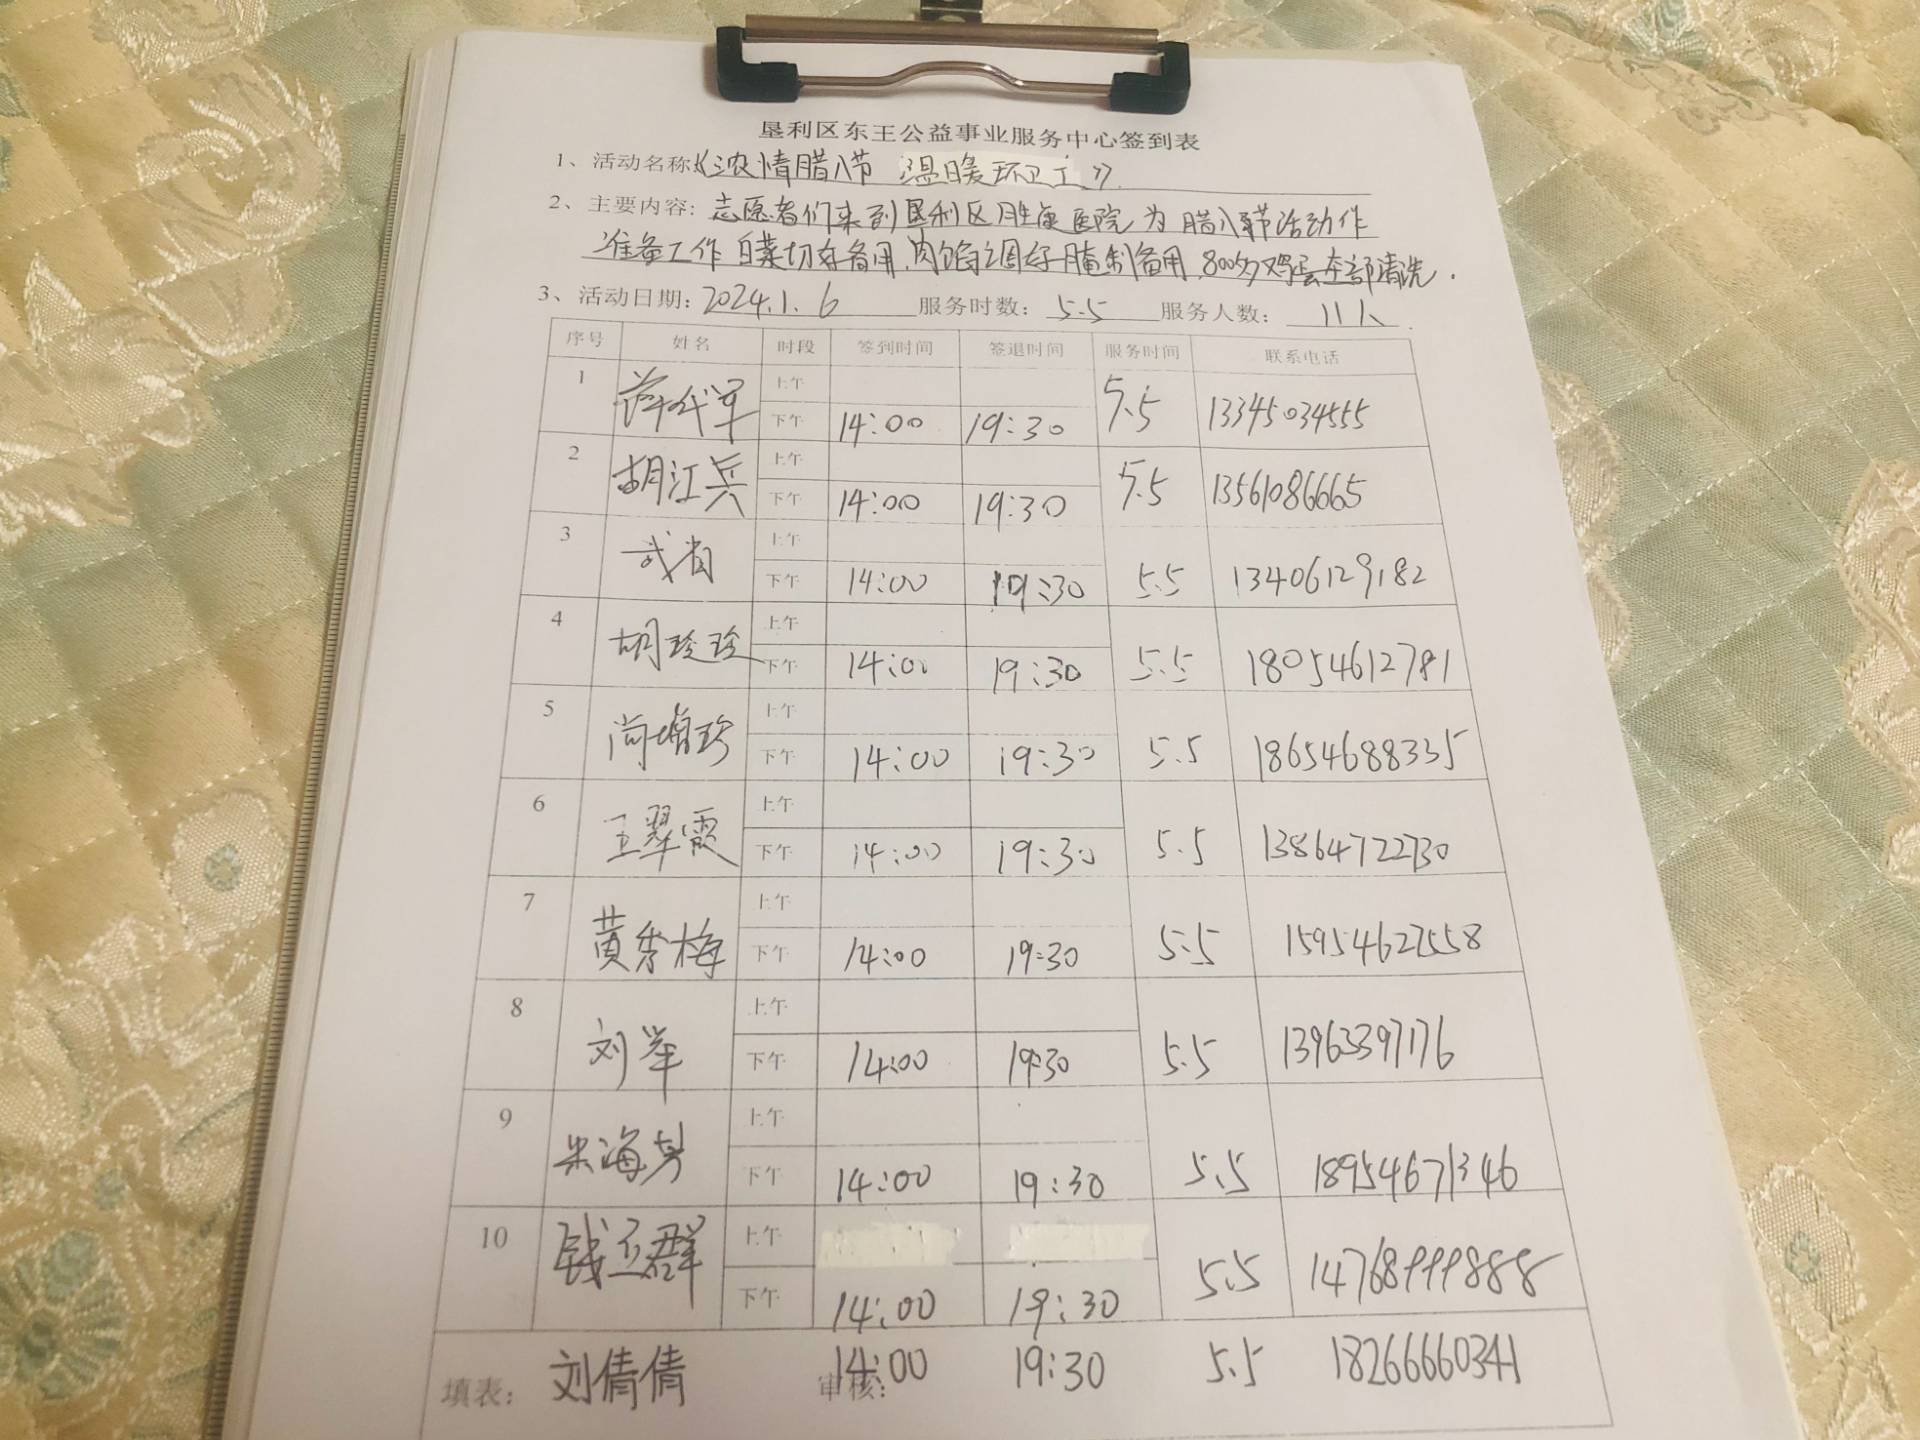 垦利区东王公益事业服务中心签到表
1、活动名称:《浓情腊八节 温暖环卫工》
2、主要内容: 志愿者们来到垦利区胜康医院为腊八节活动作
准备工作 白菜切好备用,肉馅调好腌制备用,800多鸡蛋全部清洗.
3、活动日期: 2024.1.6 服务时数: 5.5 服务人数: 11人
序号 姓名 时段 签到时间 签退时间 服务时间 联系电话
1 薛代军 上午
下午 14:00 19:30 5.5 13345034555
2 胡江兵 上午
下午 14:00 19:30 5.5 13561086665
3 武 上午
下午 14:00 19:30 5.5 13406129182
4 胡玲玲 上午
下午 14:00 19:30 5.5 18054612781
5 尚增珍 上午
下午 14:00 19:30 5.5 18654688335
6 王翠霞 上午
下午 14:00 19:30 5.5 13864722730
7 黄秀梅 上午
下午 14:00 19:30 5.5 15954627558
8 刘 上午
下午 14:00 19:30 5.5 13963397176
9 朱海 上午
下午 14:00 19:30 5.5 18954671346
10 钱立群 上午
下午 14:00 19:30 5.5 14768999888
填表: 刘倩倩 审核: 14:00 19:30 5.5 18266660341